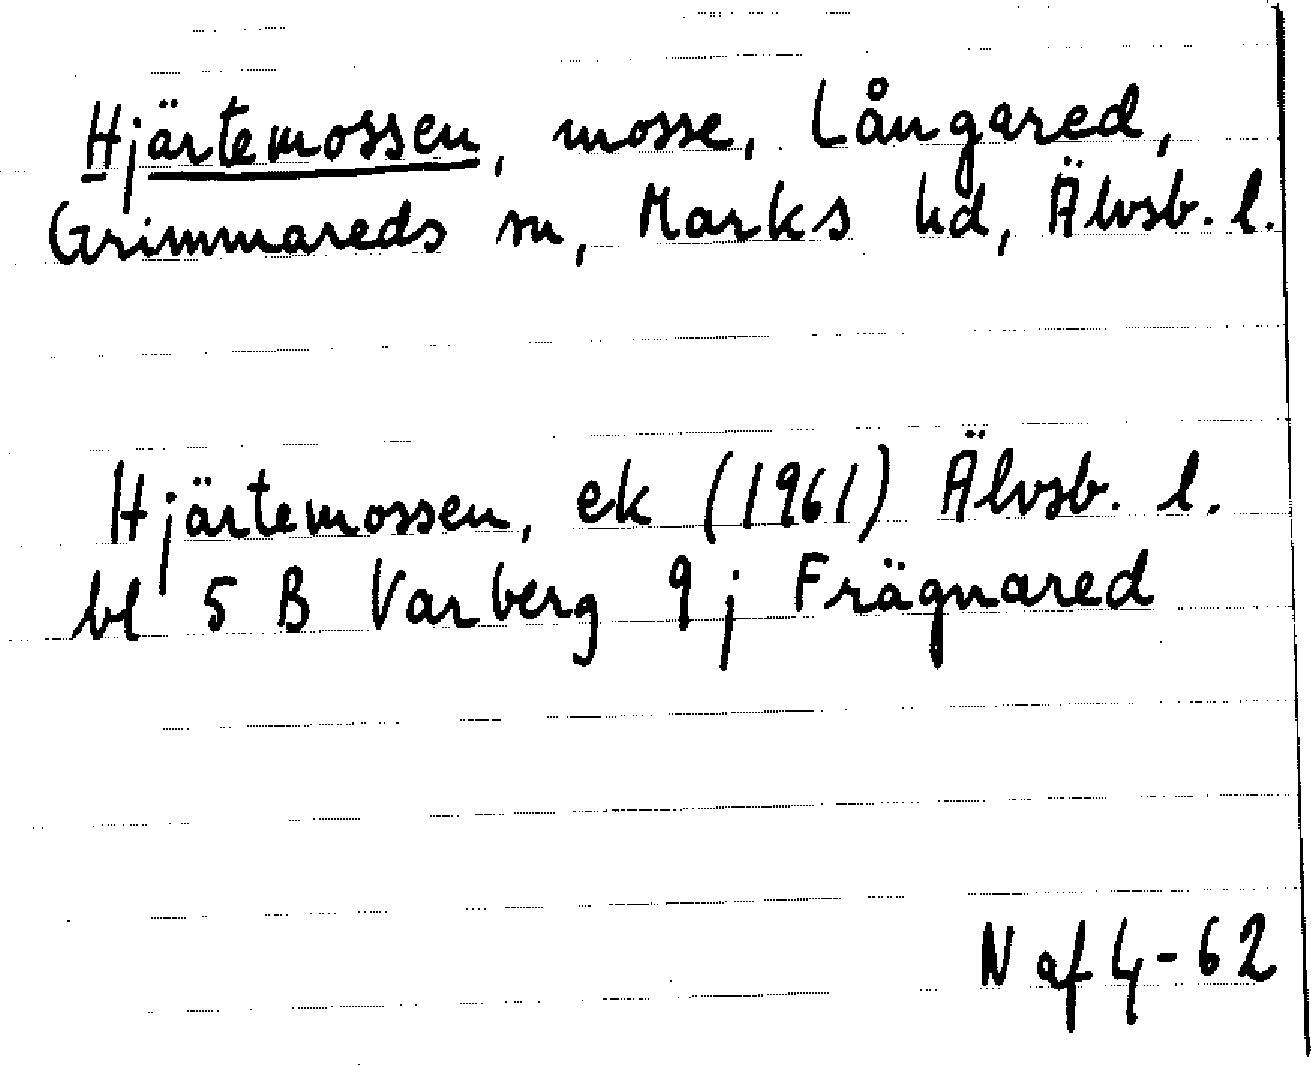 Hjärtemossen, mosse, Långared,
Grimmareds sn, Marks hd, Älvsb. l.
Hjärtemossen, ek (1961) Älvsb. l.
bl 5 B Varberg 9j Frägnared
N af 4-62